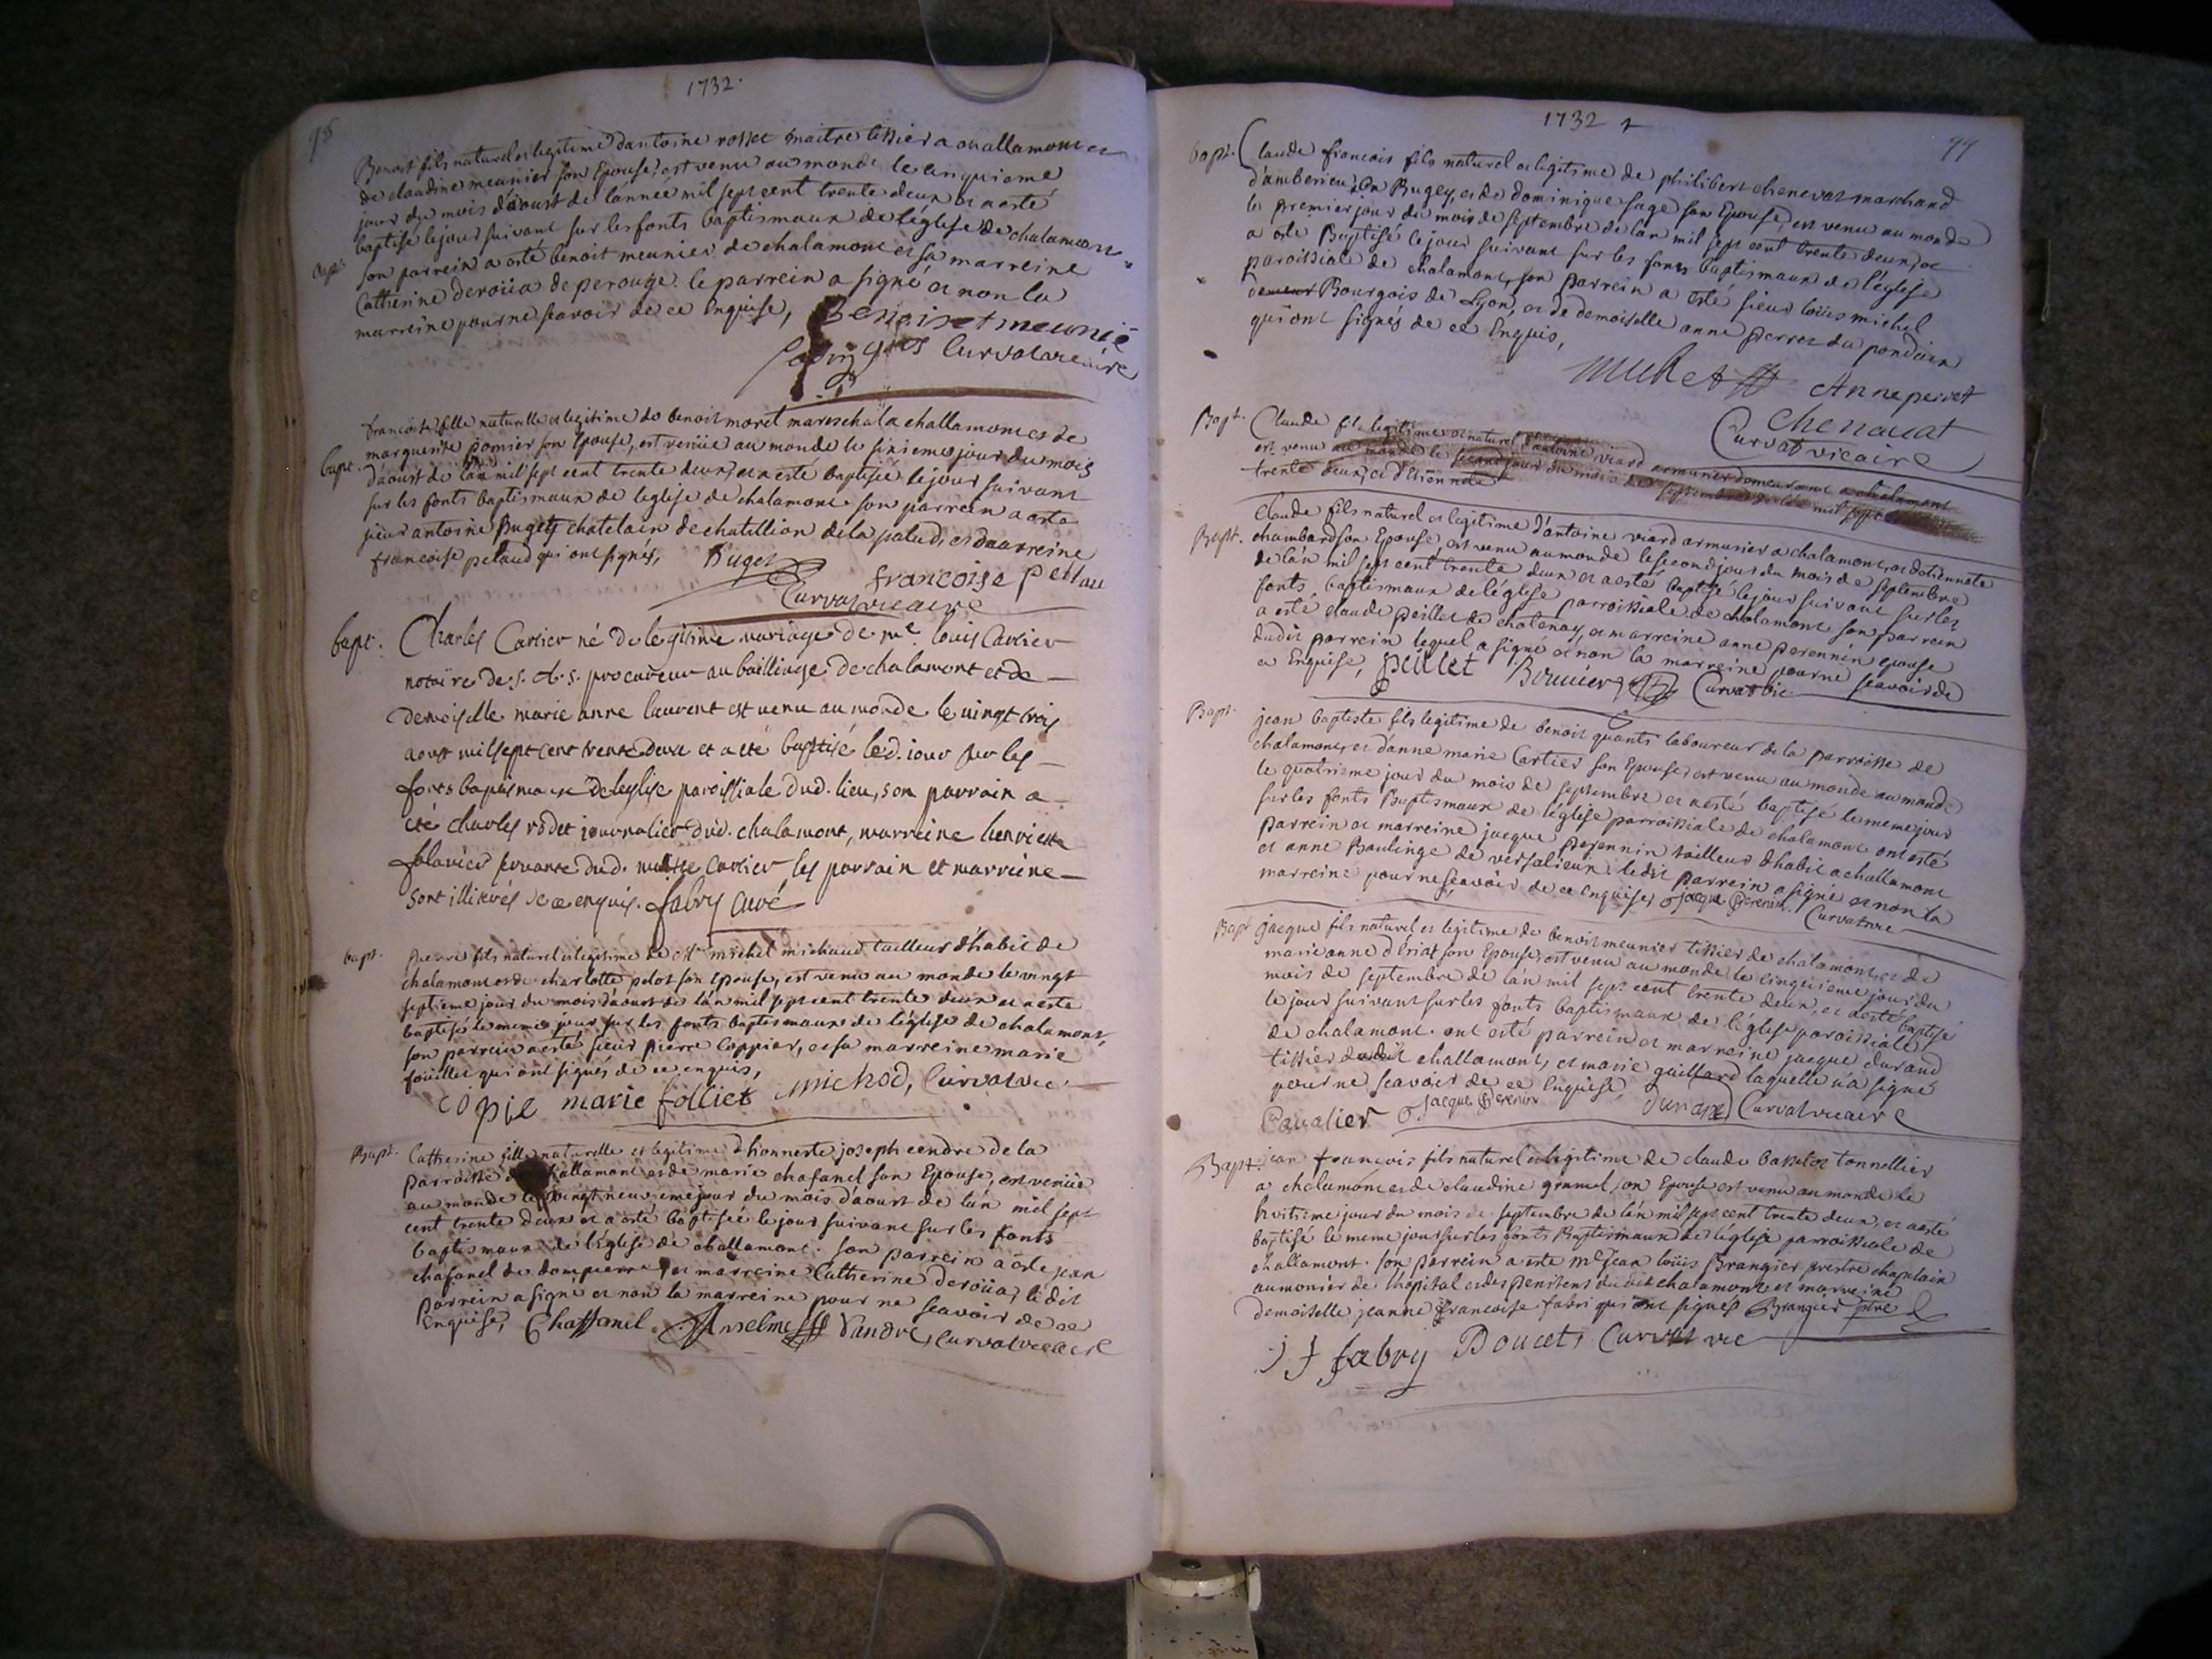 1732.
98
Benoist fils naturel et legitime d'antoine rosset maitre tissier a challamont et
de claudine meunier son Epouse, est venu au monde le cinquieme
jour du mois d'aoust de l'année mil sept cent trente deux et a esté
baptisé le jour suivant sur les fonts baptismaux de l'église de chalamont.
bapt. son parrein a esté benoit meunier de chalamont et sa marreine
Catherine deroüa de perouge. le parrein a signé et non la
marreine pour ne scavoir de ce Enquise, Benoist meunié
Curvat vicaire
francoise fille naturelle et legitime de benoit morel mareschal a challamont et de
bapt. marguerite pomier son Epouse, est venüe au monde le sixieme jour du mois
d'aoust de l'an mil sept cent trente deux, et a esté baptisée le jour suivant
sur les fonts baptismaux de l'eglise de chalamont son parrein a esté
sieur antoine Buget chatelain de chatillion de la palud, et marreine
francoise pelaud qui ont signés, Buget
francoise pellau
Curvat vicaire
bapt. Charles Cartier né de legitime mariage de me. louis Cartier
notaire de S. A. S. procureur au bailliage de chalamont et de
demoiselle marie anne laurent est venu au monde le vingt trois
aoust mil sept cent trente deux et a eté baptisé led. jour sur les
fonts baptismaux de l'eglise paroissiale dud. lieu, son parrain a
eté charles rodet journalier dud. chalamont, marreine henriette
falavier servante dud. maitre Cartier les parrain et marreine
sont illiterés de ce enquis. fabry curé
bapt. pierre fils naturel et legitime de michel michaud tailleur d'habit de
chalamont et de charlotte pelot son Epouse, est venu au monde le vingt
septieme jour du mois d'aoust de l'an mil sept cent trente deux et a esté
baptisé le meme jour sur les fonts baptismaux de l'église de chalamont,
son parrein a esté sieur pierre Coppier, et sa marreine marie
foüillet qui ont signés de ce enquis,
copie marie folliet michod, Curvat vic.
Bapt. Catherine fille naturelle et legitime d'honneste joseph cendre de la
parroisse de challamont et de marie chafanel son Epouse, est venüe
au monde le vingt neuvieme jour du mois d'aoust de l'an mil sept
cent trente deux et a esté baptisée le jour suivant sur les fonts
baptismaux de l'église de challamont. son parrein a esté jean
chafanel de dompierre, et marreine Catherine deroüa, le dit
parrein a signé et non la marreine pour ne scavoir de ce
Enquise, Chaffanel Anselme Vandre, Curvat vicaire
1732
99
bapt. Claude francois fils naturel et legitime de philibert chenevat marchand
d'amberieu En Bugey, et de dominique sage son Epouse, est venu au monde
le premier jour du mois de septembre de l'an mil sept cent trente deux, et
a esté Baptisé le jour suivant sur les fonts baptismaux de l'église
paroissiale de chalamont, son parrein a esté sieur loüis michel
Bourgois de Lyon, et de demoiselle anne perret du pondain
qui ont signés de ce Enquis,
Michel Anne perret
chenavat
Curvat vicaire
Bapt. Claude fils legitime et naturel d'antoine viard armurier demeurant a chalamont
est venu au monde le second jour du mois de septembre de l'an mil sept
trente deux, et d'Etiennete
Claude fils naturel et legitime d'antoine viard armurier a chalamont, et d'etiennete
Bapt. chambard son Epouse, est venu au monde le second jour du mois de septembre
de l'an mil sept cent trente deux et a esté baptisé le jour suivant sur les
fonts baptismaux de l'église parroissiale de chalamont son parrein
a esté claude peillet de chatenay, et marreine anne perennin epouse
dudit parrein lequel a signé et non la marreine pour ne scavoir de
ce Enquise, peillet Bouvier Curvat vic.
Bapt. jean baptiste fils legitime de benoit quants laboureur de la parroisse de
chalamont, et d'anne marie Cartier son Epouse, est venu au monde au monde
le quatrieme jour du mois de septembre et a esté baptisé le meme jour
sur les fonts Baptismaux de l'église parroissiale de chalamont ont esté
parrein et marreine jacque perennin tailleur d'habit a challamont
et anne Baulinge de versalieux ledit parrein a signé et non la
marreine pour ne scavoir de ce enquise, Jacque Perenin. Curvat vic
Bapt. jacque fils naturel et legitime de benoit meunier tissier de chalamont, et de
marie anne dériat son Epouse, est venu au monde le cinquieme jour du
mois de septembre de l'an mil sept cent trente deux, et a esté baptisé
le jour suivant sur les fonts baptismaux de l'église paroissiale
de chalamont. ont esté parrein et marreine jacque durand
tissier dudit challamont, et marie guillard laquelle n'a signé
pour ne scavoir de ce Enquise,
Cavalier Jacque Perenin durand Curvat vicaire
Bapt. jean francois fils naturel et legitime de claude basset tonnellier
a chalamont et de claudine grumel son Epouse est venu au monde le
huitieme jour du mois de septembre de l'an mil sept cent trente deux, et a esté
baptisé le meme jour sur les fonts Baptismaux de l'église parroissiale de
challamont. son parrein a esté Mr Jean loüis Brangier prestre chapelain
aumonier de l'hopital et des penitens dudit chalamont et marreine
demoiselle jeanne francoise fabri qui ont signés Brangier ptre
J f fabry Doucet Curvat vic